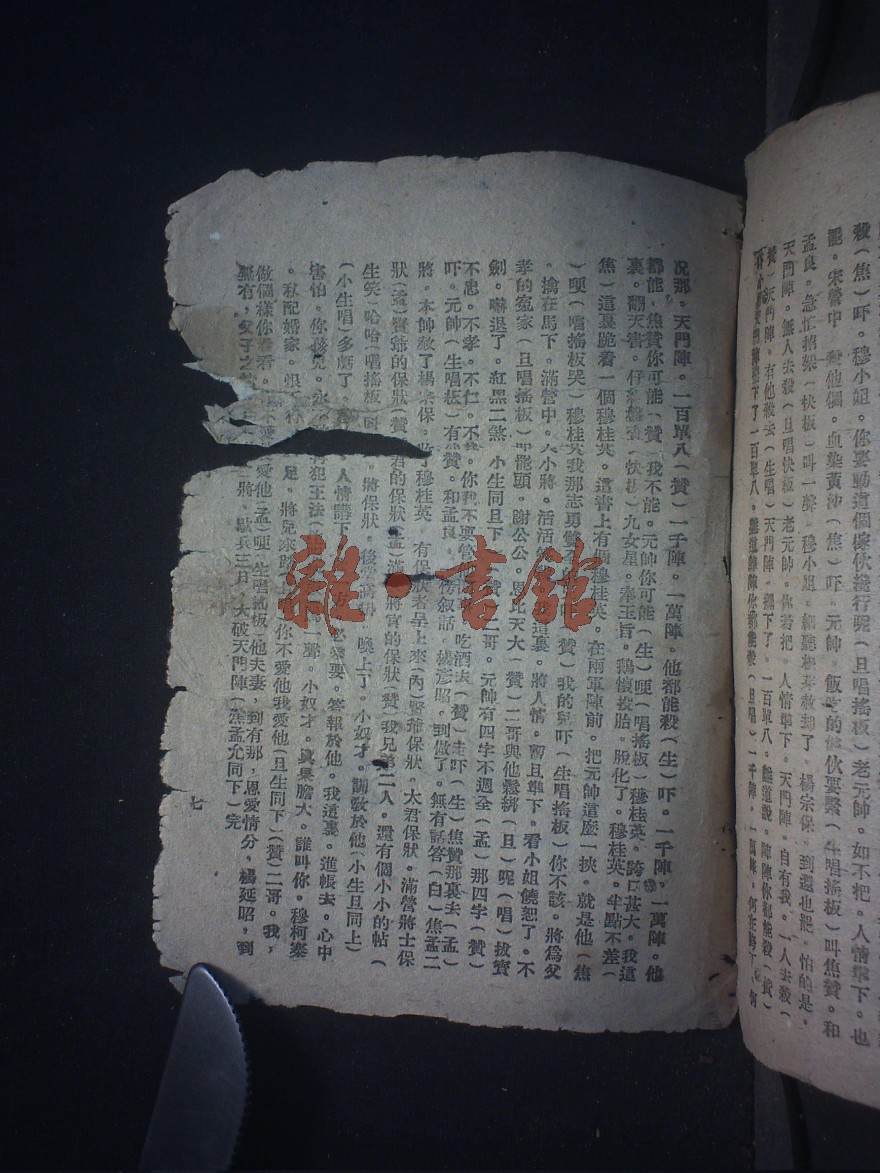 殺(焦)吓。穆小姐。你要動這個傢伙綫行呢(旦唱搖板)老元帥。如不把。人情準下。也
罷。宋營中 他個。血染黃沙(焦)吓。元帥。飯吃的傢伙要緊(生唱搖板)叫焦贊。和
孟良。急忙招架(快板)叫一聲。穆小姐。細聽根芽赦却了。楊宗保。到還也罷。怕的是。
天門陣。無人去殺(旦唱快板)老元帥。你若把。人情準下。天門陣。自有我。一人去殺(
贊)天門陣。有他殺去(生唱)天門陣。擺下了。一百單八。難道說。陣陣你都能殺(贊)
下了 一百單八。難道 陣陣你都能殺(旦唱)一千陣。一萬陣。何在
况那。天門陣。一百單八(贊)一千陣。一萬陣。他都能殺(生)吓。一千陣。一萬陣。他
都能。焦贊你可能(贊)我不能。元帥你可能(生)哽(唱搖板)穆桂英。誇口甚大。我這
裏。翻天書。仔細 查(快板)九女星。奉玉旨。 投胎。脫化了。穆桂英。半點不差(
焦)這裏跪着一個穆桂英。這書上有個穆桂英。在兩軍陣前。把元帥這麽一挾。就是他(焦
)哽(唱搖板哭)穆桂英我那志勇 (贊)我的兒吓(生唱搖板)你不該。將爲父
。擒在馬下。滿營中。大小將。活活 這裏。將人情。暫且準下。看小姐饒恕了。不
孝的寃家(旦唱搖板) 罷頭。謝公公。恩比天大(贊)二哥與他鬆綁(旦)呢(唱)拔寶
劍。嚇退了。紅黑二煞 小生同旦下 (贊)二哥。元帥有四字不週全(孟)那四字(贊)
不忠。不孝。不仁。不 你我不與管 吃酒去(贊)走吓(生)焦贊那裏去(孟)
吓。元帥(生唱板)有 贊。和孟良。 情叙話。楊彦昭。到做了。無有話答(白)焦孟二
將。本帥赦了楊宗保。 了穆桂英 有保狀者呈上來(內)賢爺保狀。太君保狀。滿營將士保
狀(孟)賢爺的保狀(贊) 君的保狀(孟)滿 將官的保狀(贊)我兄弟二人。還有個小小的帖(
生笑)哈哈(唱搖板)叫 將保狀。後 喚上了。小奴才。調教於他(小生旦同上)
(小生唱)多虧了。 人情講下 必 要。答報於他。我這裏。進帳去。心中
害怕。你孩兒。永 犯王法( 一聲。小奴才。真果膽大。誰叫你。穆柯寨
。私配婚家。恨 足。將兒來 你不愛他我愛他(旦生同下)(贊)二哥。我，
做個樣你看看。 不愛 愛他(孟)哽(生唱 板)他夫妻，到有那，恩愛情分，楊延昭，到
無有，父子之 將，歇兵三日，大破天門陣(焦孟允同下)完
七
雜·書館